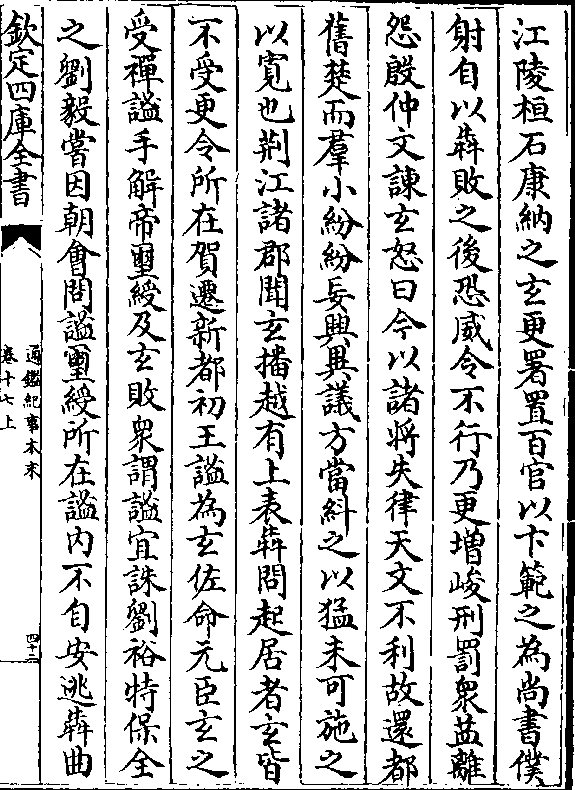 江陵桓石康納之玄更署置百官以卞範之為尚書僕
射自以犇敗之後恐威令不行乃更増峻刑罰衆益離
怨殷仲文諫玄怒曰今以諸将失律天文不利故還都
舊楚而羣小紛紛妄興異議方當糾之以猛未可施之
以寛也荆江諸郡聞玄播越有上表犇問起居者玄皆
不受更令所在賀遷新都初王謐為玄佐命元臣玄之
受禪謐手解帝璽綬及玄敗衆謂謐宜誅劉裕特保全
之劉毅嘗因朝會問謐璽綬所在謐内不自安逃犇曲
欽定四庫全書
通鑑紀事本末
卷十七上
四十二